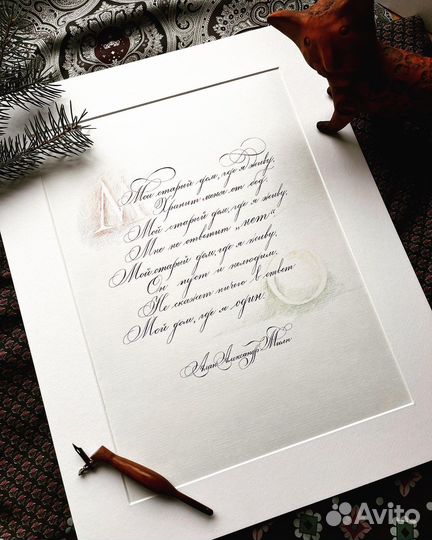 Мой старый дом, где я живу,
Хранит меня от бед.
Мой старый дом, где я живу,
Мне не ответит „нет“
Мой старый дом, где я живу,
Он пуст и нелюдим,
Не скажет ничего в ответ
Мой дом, где я один.
Алан Александр Милн
Avito